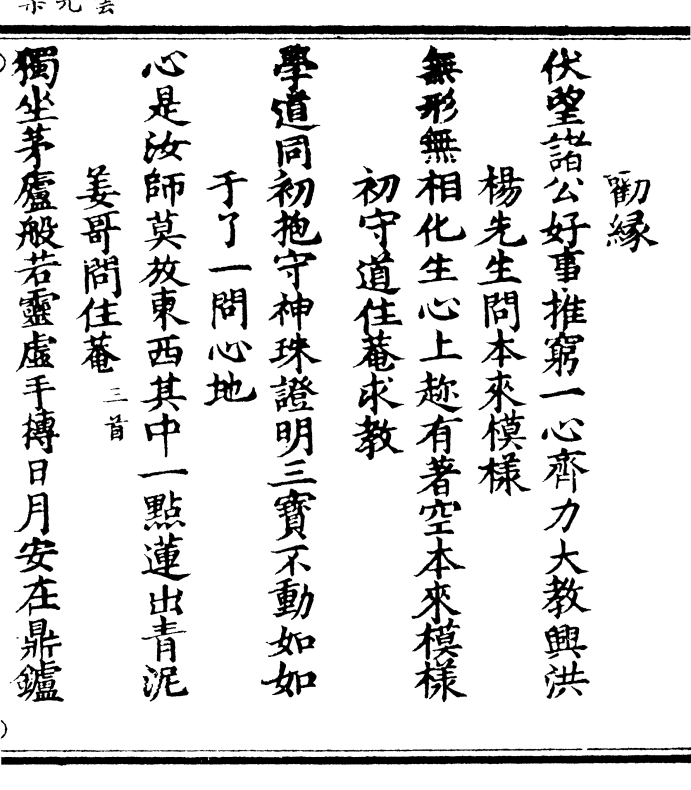 勸縁
伏望諸公好事推窮一心齊力大教興洪
楊先生問本來模樣
無形無相化生心上趂有著空本來模樣
初守道住菴求教
學道同初抱守神珠證明三寳不動如如
于了一問心地
心是汝師莫放東西其中一點蓮出青泥
姜哥問住菴 三首
獨坐茅廬般若靈虛手摶日月安在鼎鑪